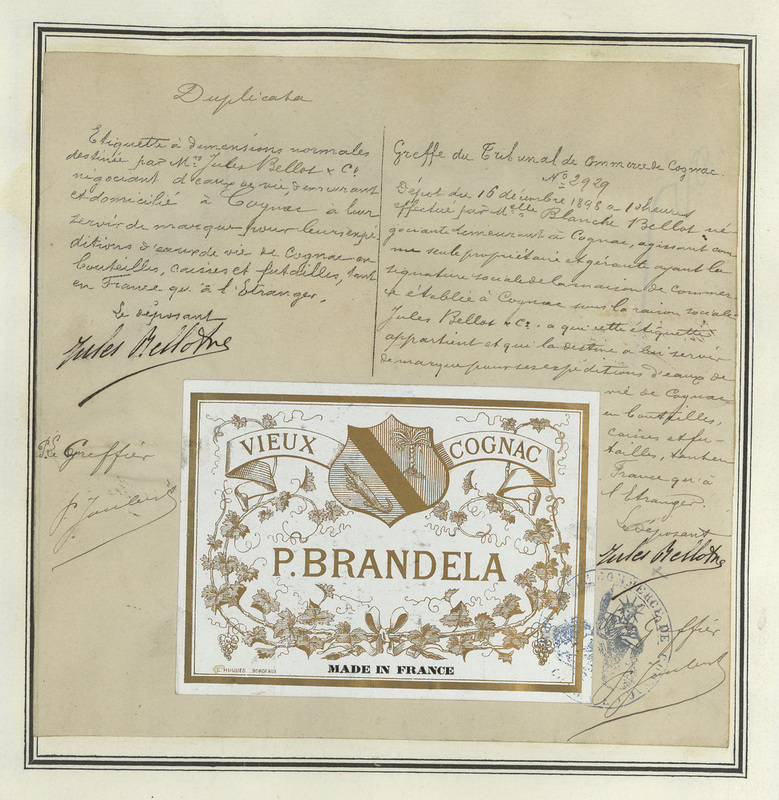 Duplicata
Etiquette à dimensions normales
destinée par Mrs Jules Bellot & Co.
négociant d'eaux de vie, demeurant
et domicilié à Cognac à leur
servir de marque pour leurs expé
ditions d'eaux de vie de Cognac en
bouteilles, caisses et futailles, tant
en France qu'à l'Etranger.
Le déposant
Jules Bellot & Co
Le Greffier
Greffe du Tribunal de Commerce de Cognac.
No 2929
Dépôt du 16 décembre 1893 à 10 heures
effectué par Melle Blanche Bellot né-
gociante demeurant à Cognac, agissant com
me seule propriétaire et gérante ayant la
signature sociale de la maison de commer
ce établie à Cognac sous la raison sociale
Jules Bellot & Co. a qui cette étiquette
appartient et qui la destine à lui servir
de marque pour ses expéditions d'eaux de
vie de Cognac
en bouteilles,
caisses et fu-
tailles, tant en
France qu'à
l'Etranger.
Le déposant
Jules Bellot & Co
Greffier
VIEUX COGNAC
P. BRANDELA
HUGUES BORDEAUX
MADE IN FRANCE
COMMERCE DE